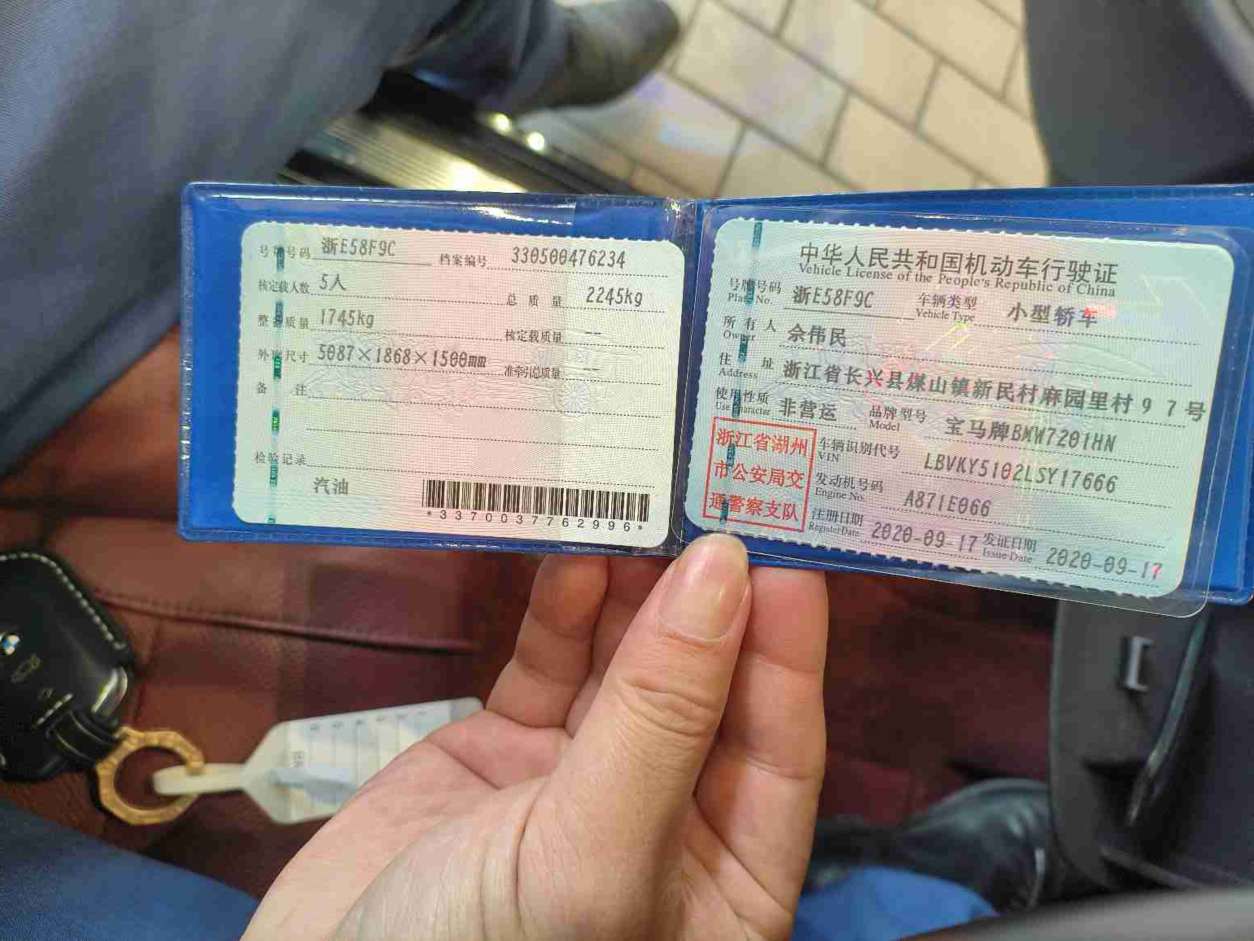 号牌号码 浙E58F9C 档案编号 330500476234
核定载人数 5人 总质量 2245kg
整备质量 1745kg 核定载质量 --
外廓尺寸 5087×1868×1500mm 准牵引总质量 --
备注
检验记录
汽油
*3370037762996*
中华人民共和国机动车行驶证
Vehicle License of the People's Republic of China
号牌号码 浙E58F9C 车辆类型 小型轿车
Plate No. Vehicle Type
所有人 佘伟民
Owner
住址 浙江省长兴县煤山镇新民村麻园里村97号
Address
使用性质 非营运 品牌型号 宝马牌BMW7201HN
Use Character Model
浙江省湖州
市公安局交
通警察支队
车辆识别代号 LBVKY5102LSY17666
VIN
发动机号码 A871E066
Engine No.
注册日期 2020-09-17 发证日期 2020-09-17
Register Date Issue Date